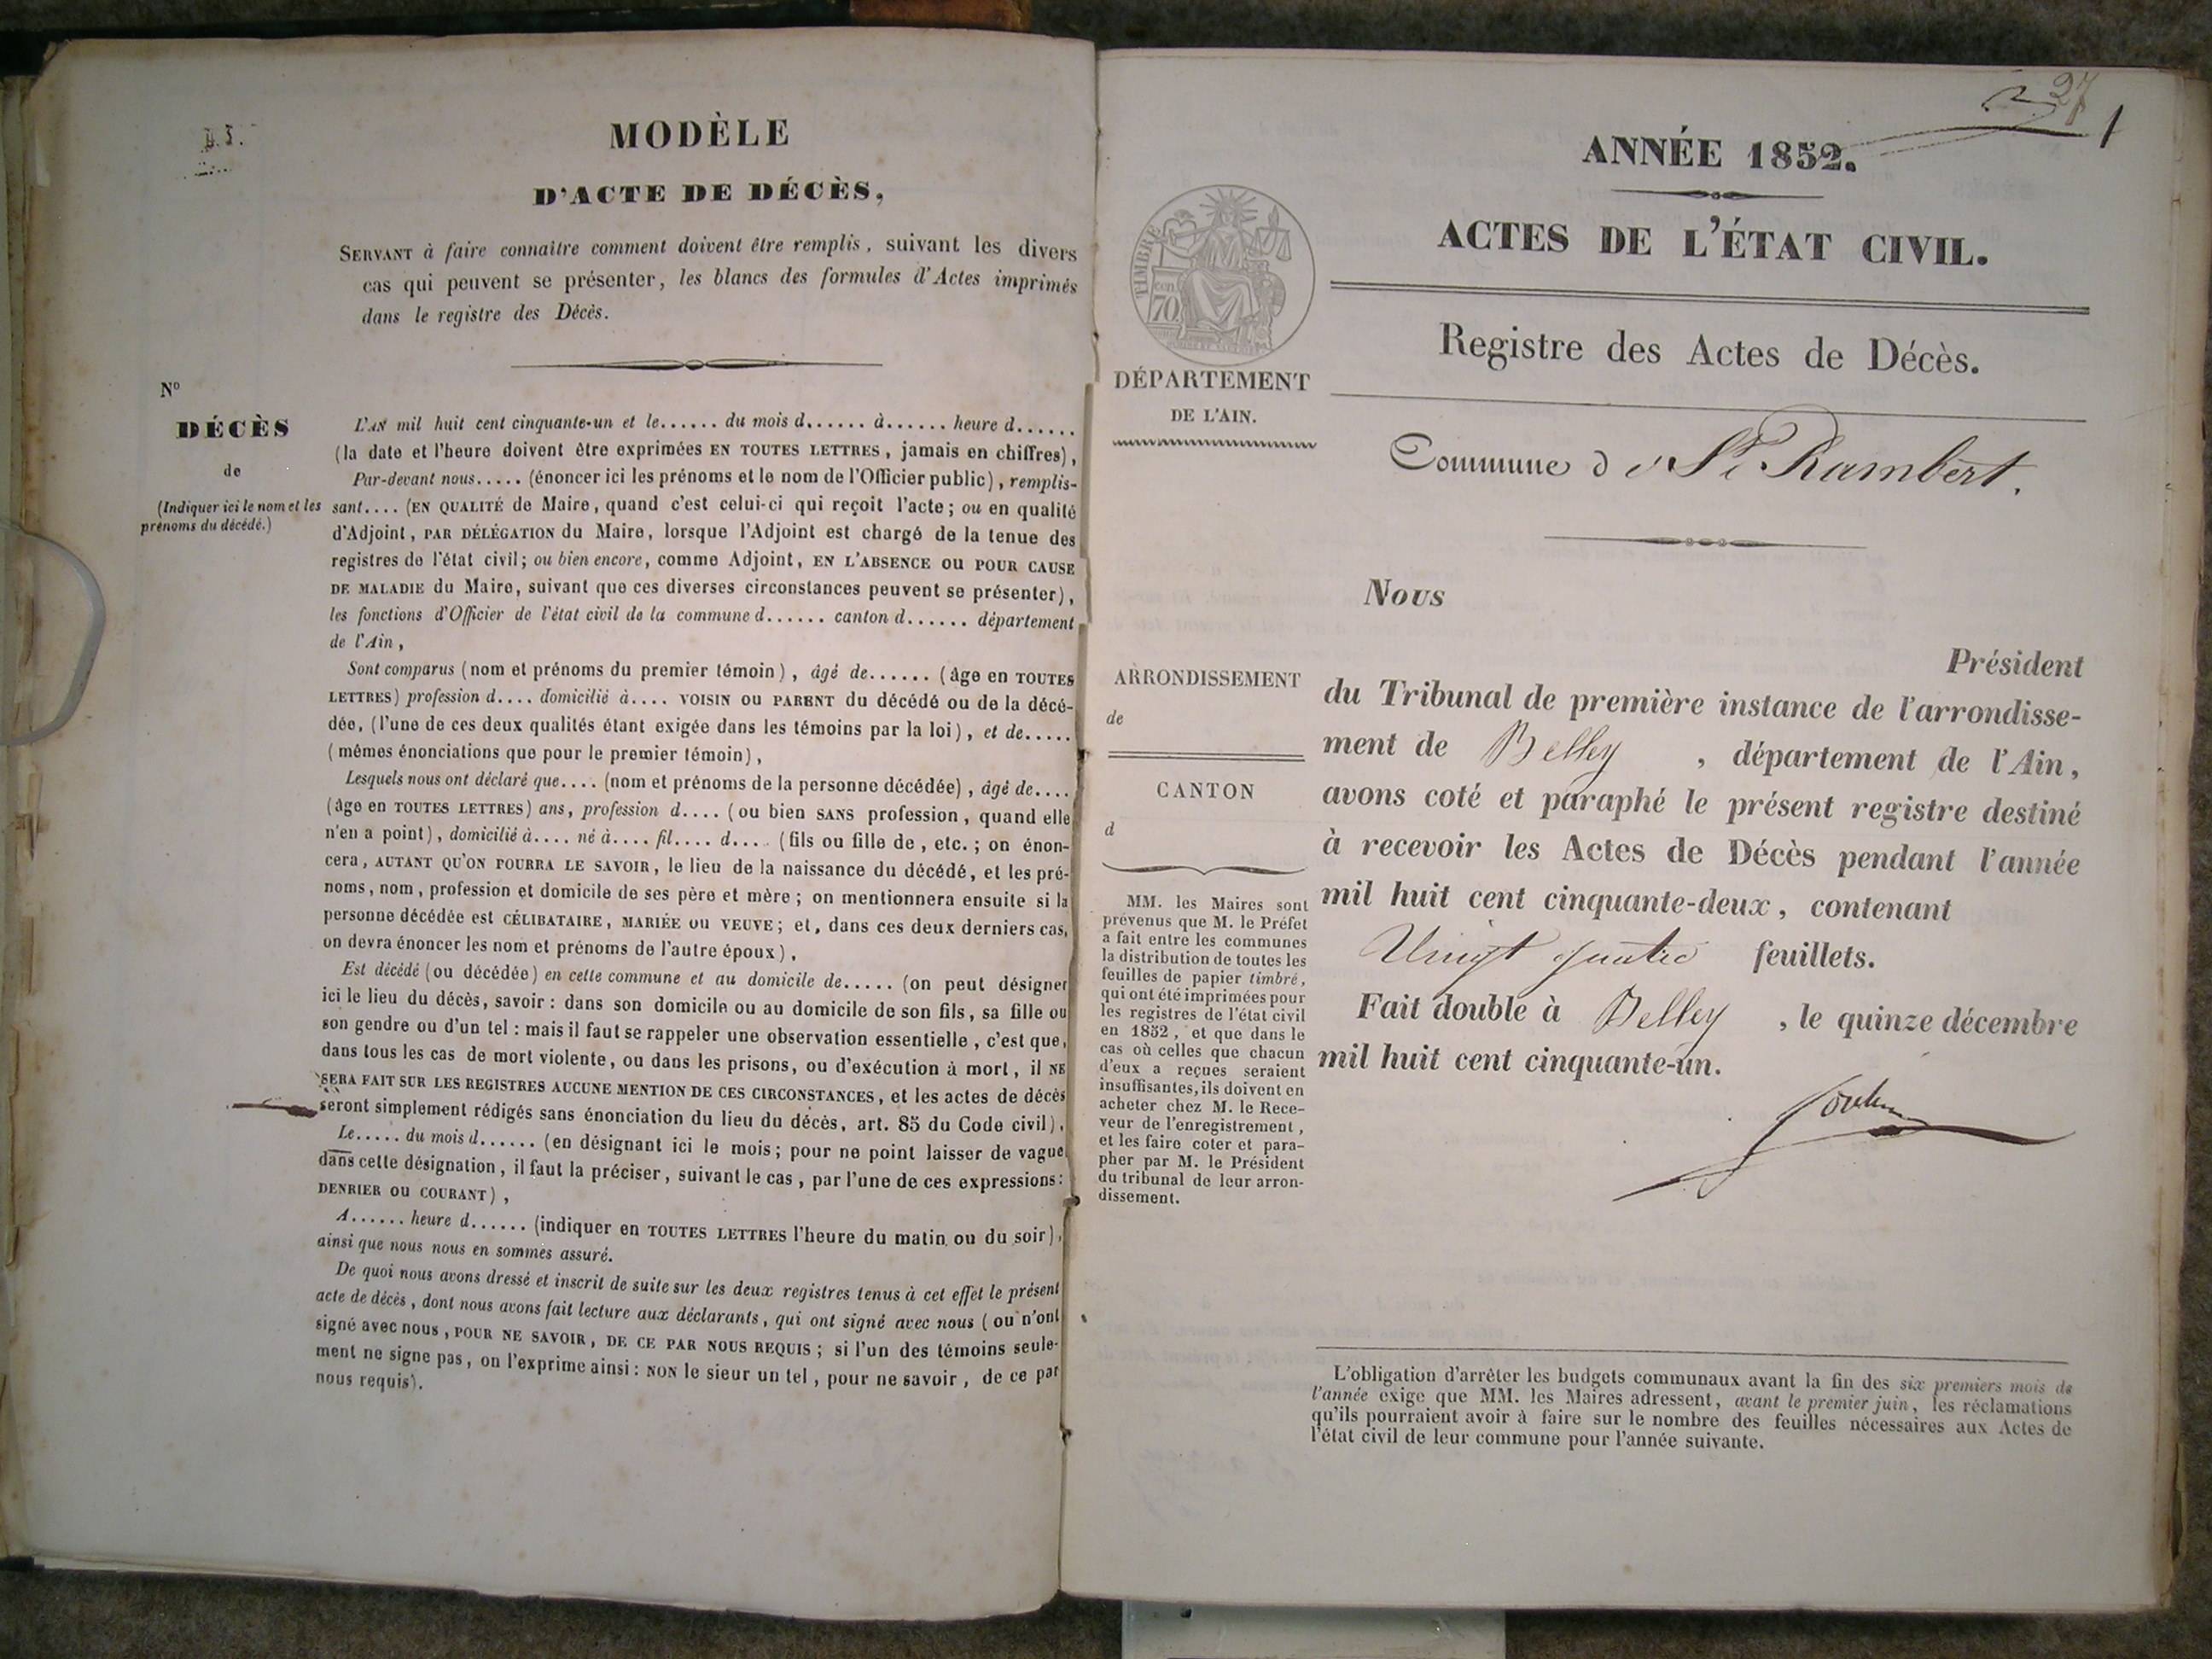 MODÈLE
D'ACTE DE DÉCÈS,
SERVANT à faire connaître comment doivent être remplis, suivant les divers
cas qui peuvent se présenter, les blancs des formules d'Actes imprimés
dans le registre des Décès.
No
DÉCÈS
de
(Indiquer ici le nom et les
prénoms du décédé.)
L'AN mil huit cent cinquante-un et le...... du mois d...... à...... heure d......
(la date et l'heure doivent être exprimées EN TOUTES LETTRES, jamais en chiffres),
Par-devant nous..... (énoncer ici les prénoms et le nom de l'Officier public), remplis-
sant.... (EN QUALITÉ de Maire, quand c'est celui-ci qui reçoit l'acte; ou en qualité
d'Adjoint, PAR DÉLÉGATION du Maire, lorsque l'Adjoint est chargé de la tenue des
registres de l'état civil; ou bien encore, comme Adjoint, EN L'ABSENCE OU POUR CAUSE
DE MALADIE du Maire, suivant que ces diverses circonstances peuvent se présenter),
les fonctions d'Officier de l'état civil de la commune d...... canton d...... département
de l'Ain,
Sont comparus (nom et prénoms du premier témoin), âgé de...... (âge en TOUTES
LETTRES) profession d.... domicilié à.... VOISIN OU PARENT du décédé ou de la décé-
dée, (l'une de ces deux qualités étant exigée dans les témoins par la loi), et de.....
(mêmes énonciations que pour le premier témoin),
Lesquels nous ont déclaré que.... (nom et prénoms de la personne décédée), âgé de....
(âge en TOUTES LETTRES) ans, profession d.... (ou bien SANS profession, quand elle
n'en a point), domicilié à.... né à.... fil.... d.... (fils ou fille de, etc.; on énon-
cera, AUTANT QU'ON POURRA LE SAVOIR, le lieu de la naissance du décédé, et les pré-
noms, nom, profession et domicile de ses père et mère; on mentionnera ensuite si la
personne décédée est CÉLIBATAIRE, MARIÉE OU VEUVE; et, dans ces deux derniers cas,
on devra énoncer les nom et prénoms de l'autre époux),
Est décédé (ou décédée) en cette commune et au domicile de..... (on peut désigner
ici le lieu du décès, savoir: dans son domicile ou au domicile de son fils, sa fille ou
son gendre ou d'un tel: mais il faut se rappeler une observation essentielle, c'est que,
dans tous les cas de mort violente, ou dans les prisons, ou d'exécution à mort, il NE
SERA FAIT SUR LES REGISTRES AUCUNE MENTION DE CES CIRCONSTANCES, et les actes de décès
seront simplement rédigés sans énonciation du lieu du décès, art. 85 du Code civil),
Le..... du mois d...... (en désignant ici le mois; pour ne point laisser de vague
dans cette désignation, il faut la préciser, suivant le cas, par l'une de ces expressions:
DENRIER OU COURANT),
A...... heure d...... (indiquer en TOUTES LETTRES l'heure du matin ou du soir),
ainsi que nous nous en sommes assuré.
De quoi nous avons dressé et inscrit de suite sur les deux registres tenus à cet effet le présent
acte de décès, dont nous avons fait lecture aux déclarants, qui ont signé avec nous (ou n'ont
signé avec nous, POUR NE SAVOIR, DE CE PAR NOUS REQUIS; si l'un des témoins seule-
ment ne signe pas, on l'exprime ainsi: NON le sieur un tel, pour ne savoir, de ce par
nous requis).
27
1
ANNÉE 1852.
ACTES DE L'ÉTAT CIVIL.
Registre des Actes de Décès.
TIMBRE
70
DÉPARTEMENT
DE L'AIN.
Commune de St Rambert.
Nous
Président
du Tribunal de première instance de l'arrondisse-
ment de Belley, département de l'Ain,
avons coté et paraphé le présent registre destiné
à recevoir les Actes de Décès pendant l'année
mil huit cent cinquante-deux, contenant
Vingt quatre feuillets.
Fait double à Belley, le quinze décembre
mil huit cent cinquante-un.
ARRONDISSEMENT
de
CANTON
d
MM. les Maires sont
prévenus que M. le Préfet
a fait entre les communes
la distribution de toutes les
feuilles de papier timbré,
qui ont été imprimées pour
les registres de l'état civil
en 1852, et que dans le
cas où celles que chacun
d'eux a reçues seraient
insuffisantes, ils doivent en
acheter chez M. le Rece-
veur de l'enregistrement,
et les faire coter et para-
pher par M. le Président
du tribunal de leur arron-
dissement.
L'obligation d'arrêter les budgets communaux avant la fin des six premiers mois de
l'année exige que MM. les Maires adressent, avant le premier juin, les réclamations
qu'ils pourraient avoir à faire sur le nombre des feuilles nécessaires aux Actes de
l'état civil de leur commune pour l'année suivante.